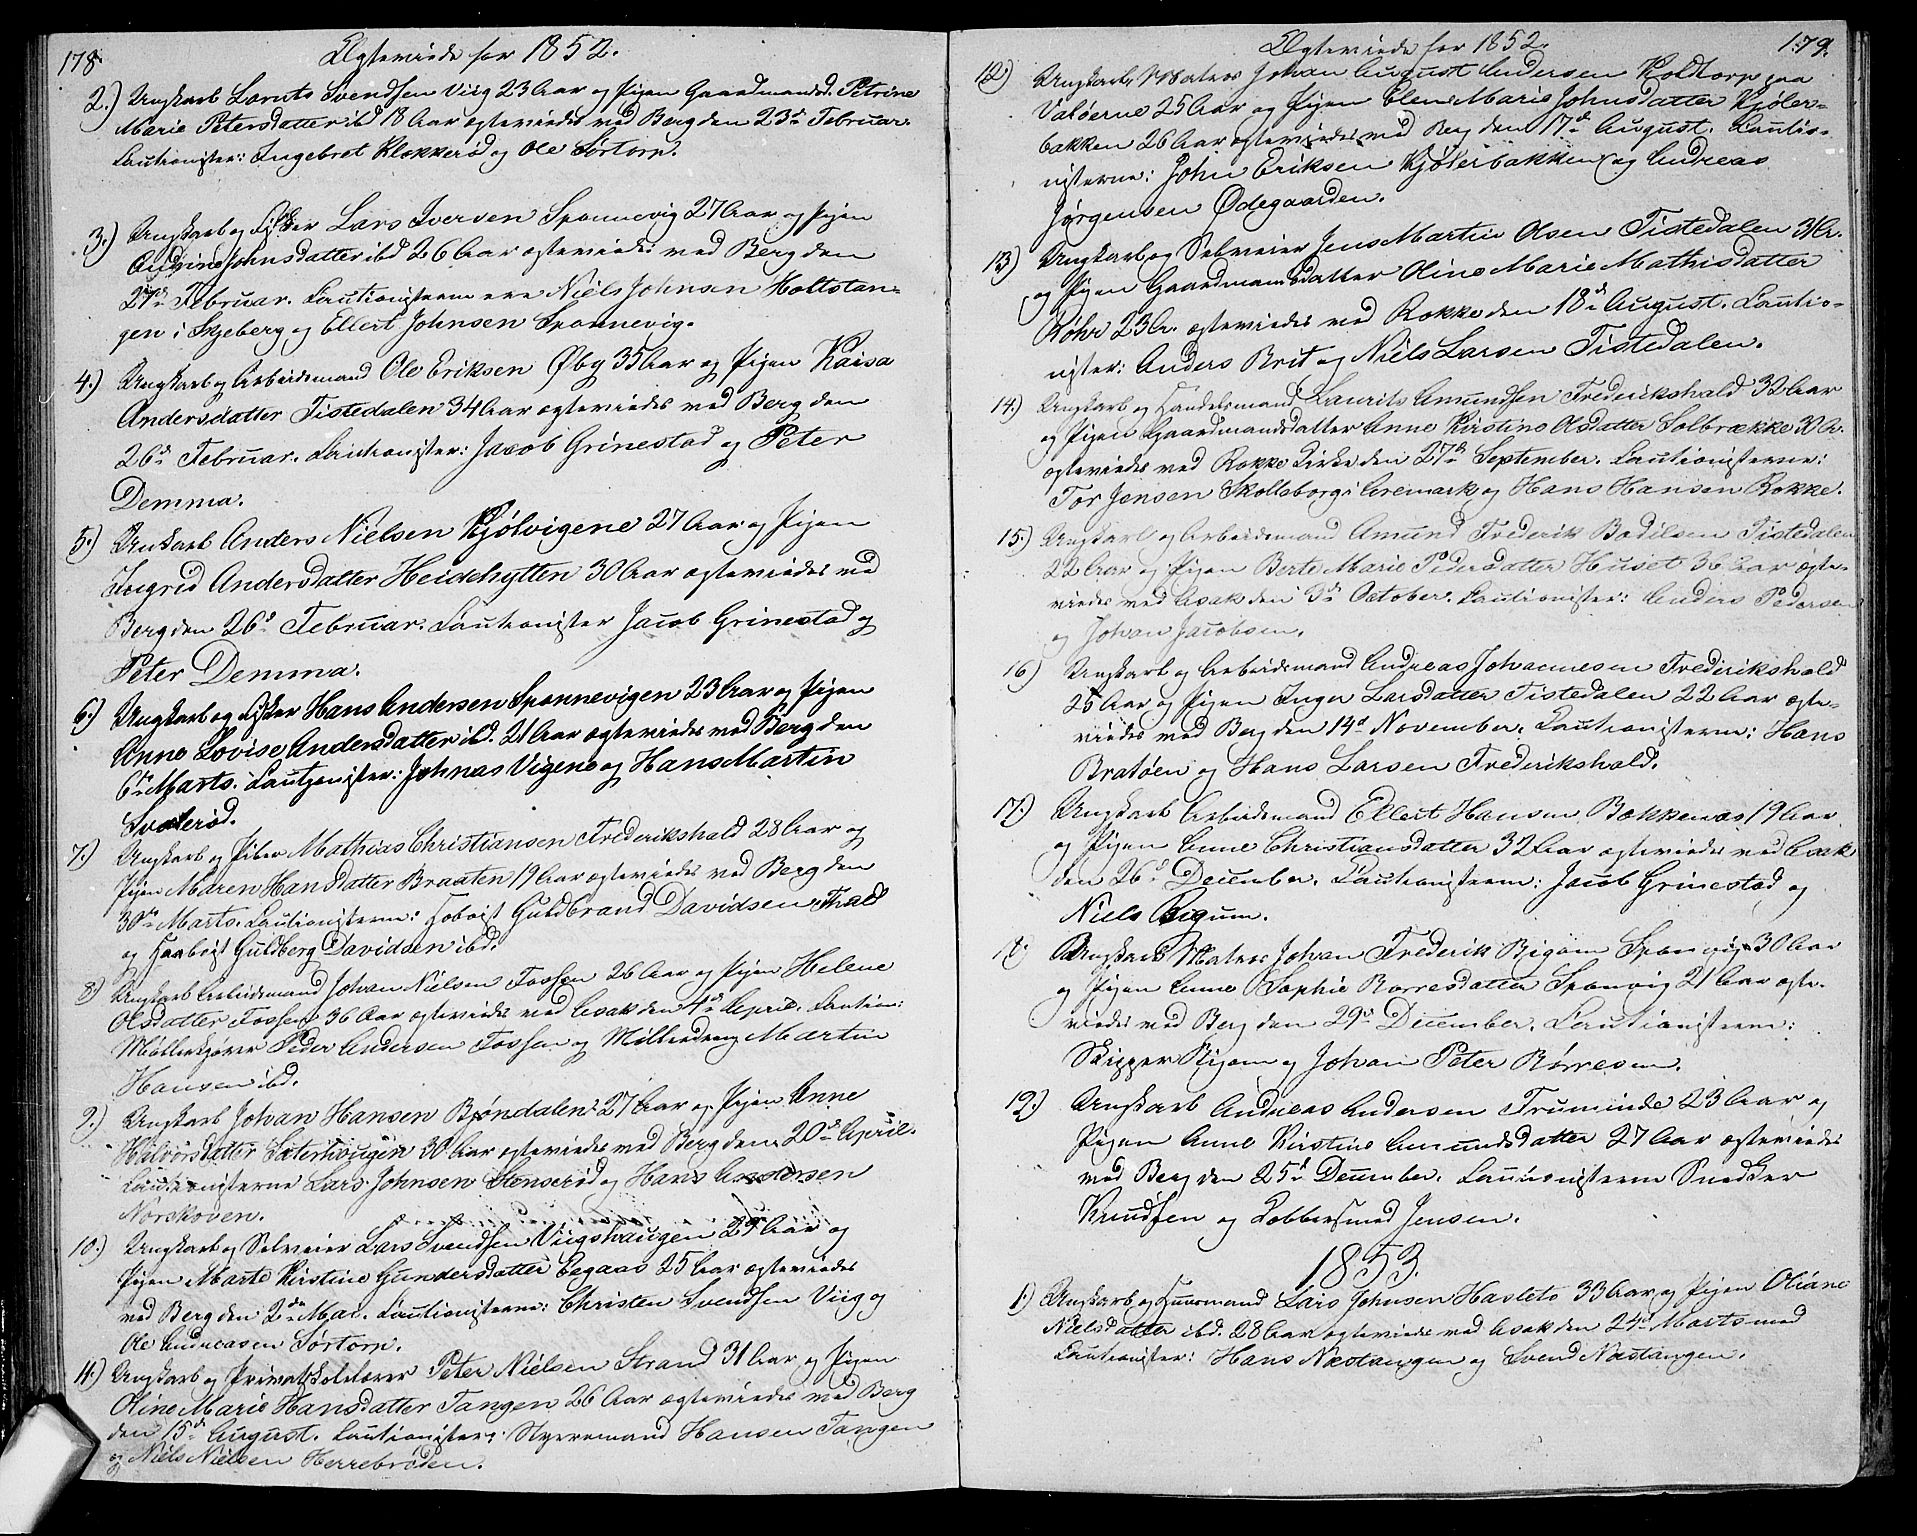 178
Ægteviede for 1852.
2.) Ungkarl Laruts Svendsen Viig 23 Aar og Pigen Gaardmandsd. Petrine
Marie Petersdatter ibd 18 Aar ægteviedes ved Berg den 23de Februar.
Cautionister: Ingebret Klækkerød og Ole Sørtorp.
3.) Ungkarl og Fisker Lars Iversen Sponnevig 27 Aar og Pigen
Andrine Johnsdatter ibd 26 Aar ægteviedes ved Berg den
27de Februar. Cautionisterne ere Niels Johnsen Holtstan-
gen i Skjeberg og Ellert Johnsen Sponnevig.
4.) Ungkarl og Arbeidsmand Ole Eriksen Øby 35 Aar og Pigen Kaisa
Andersdatter Tistedalen 34 Aar ægteviedes ved Berg den
26de Februar. Cautionister: Jacob Grinestad og Peter
Demma.
5.) Unkarl Anders Nielsen Kjølvigene 27 Aar og Pigen
Ingrid Andersdatter Heidehytten 30 Aar ægteviedes ved
Berg den 26de Februar. Cautionister Jacob Grinestad og
Peter Demma.
6.) Ungkarl og Fisker Hans Andersen Sponnevigen 23 Aar og Pigen
Anne Lovise Andersdatter ibd. 21 Aar ægteviedes ved Berg den
6te Marts. Cautionister: Johnas Vigene og Hans Martin
Svalerød.
7.) Ungkarl og Mathias Christiansen Frederikshald 28 Aar og
Pigen Maren Hansdatter Braaten 19 Aar ægteviedes ved Berg den
30te Marts. Cautionisterne: Hoboist Guldbrand Davidsen Fhald
og Haaboist Guldberg Davidsen ibd.
8.) Ungkarl Arbeidsmand Johan Nielsen Fossen 26 Aar og Pigen Helene
Olsdatter Fossen 36 Aar ægteviedes ved Asak den 4de April. Caution:
Møllerkjører Peder Andersen Fossen og Mølledreng Martin
Hansen ibd.
9.) Ungkarl Johan Hansen Bjøndalen 27 Aar og Pigen Anne
Halvorsdatter Sæterhougen 30 Aar ægteviedes ved Berg den 20de April.
Cautionisterne Lars Johnsen Stenserød og Hans Andersen
Norskoven.
10.) Ungkarl og Selveier Lars Svendsen Viigshaugen 29 Aar og
Pigen Marte Kirstine Gundersdatter Eegaas 25 Aar ægteviedes
ved Berg den 2den Mai. Cautionisterne: Christen Svendsen Viig og
Ole Andreasen Sørtorp.
11.) Ungkarl og Privatskolelærer Peter Nielsen Strand 31 Aar og Pigen
Oline Marie Hansdatter Tangen 26 Aar ægteviedes ved Berg
den 15de August. Cautionister: Styrremand Hansen Tangen
og Niels Nielsen Herrebrøden.
179.
Ægteviede for 1852.
12.) Ungkarl Matros Johan August Andersen Holdtorp paa
Valøerne 25 Aar og Pigen Elen Marie Johnsdatter Kjøler-
bakken 26 Aar ægteviedes ved Berg den 17de August. Cautio-
nisterne: John Eriksen Kjølerbakken og Andreas
Jørgensen Ødegaarden.
13.) Ungkarl og Selveier Jens Martin Olsen Tistedalen 31 Ar.
og Pigen Gaardmandsdatter Oline Marie Mathisdatter
Røhr 23 A. ægteviedes ved Rokke den 18de August. Cautio-
nister: Anders Brit og Niels Larsen Tistedalen.
14.) Ungkarl og Handelsmand Laurits Amundsen Frederikshald 32 Aar
og Pigen Gaardmandsdatter Anne Kirstine Olsdatter Solbrække 30 Ar.
ægteviedes ved Rokke Kirke den 27de September. Cautionisterne:
Tor Jensen Skollsborg i Aremark og Hans Hansen Rokke.
15.) Ungkarl og Arbeidsmand Amund Frederik Bodilsen Tistedalen
22 Aar og Pigen Berte Marie Pedersdatter Huset 36 Aar ægte-
viedes ved Asak den 3de October. Cautionister: Anders Pedersen
og Johan Jacobsen.
16.) Ungkarl og Arbeidsmand Andreas Johannesen Frederikshald
25 Aar og Pigen Inger Larsdatter Tistedalen 22 Aar ægte-
viedes ved Berg den 14de November. Cautionisterne: Hans
Bratøen og Hans Larsen Frederikshald.
17.) Ungkarl Arbeidsmand Ellert Hansen Bækkenæs 19 Aar
og Pigen Anne Christiansdatter 32 Aar ægteviedes ved Asak
den 26de December. Cautionisterne: Jacob Grinestad og
Niels Bigum.
18.) Ungkarl Matros Johan Frederik Bigum Sponvig 30 Aar
og Pigen Anne Sophie Børresdatter Sponvig 21 Aar ægte-
viedes ved Berg den 29de December. Cautionisterne:
Skipper Bigum og Johan Peter Børresen.
19.) Ungkarl Andreas Andersen Truminde 23 Aar og
Pigen Anne Kirstine Amundsdatter 27 Aar ægteviedes
ved Berg den 25de December. Cautionisterne Snedker
Knudsen og Kobbersmed Jensen.
1853.
1.) Ungkarl og Huusmand Lars Johnsen Hasleto 33 Aar og Pigen Oliane
Nielsdatter ibd. 28 Aar ægteviede ved Asak den 24de Marts med
Cautionister: Hans Næstangen og Svend Næstangen.